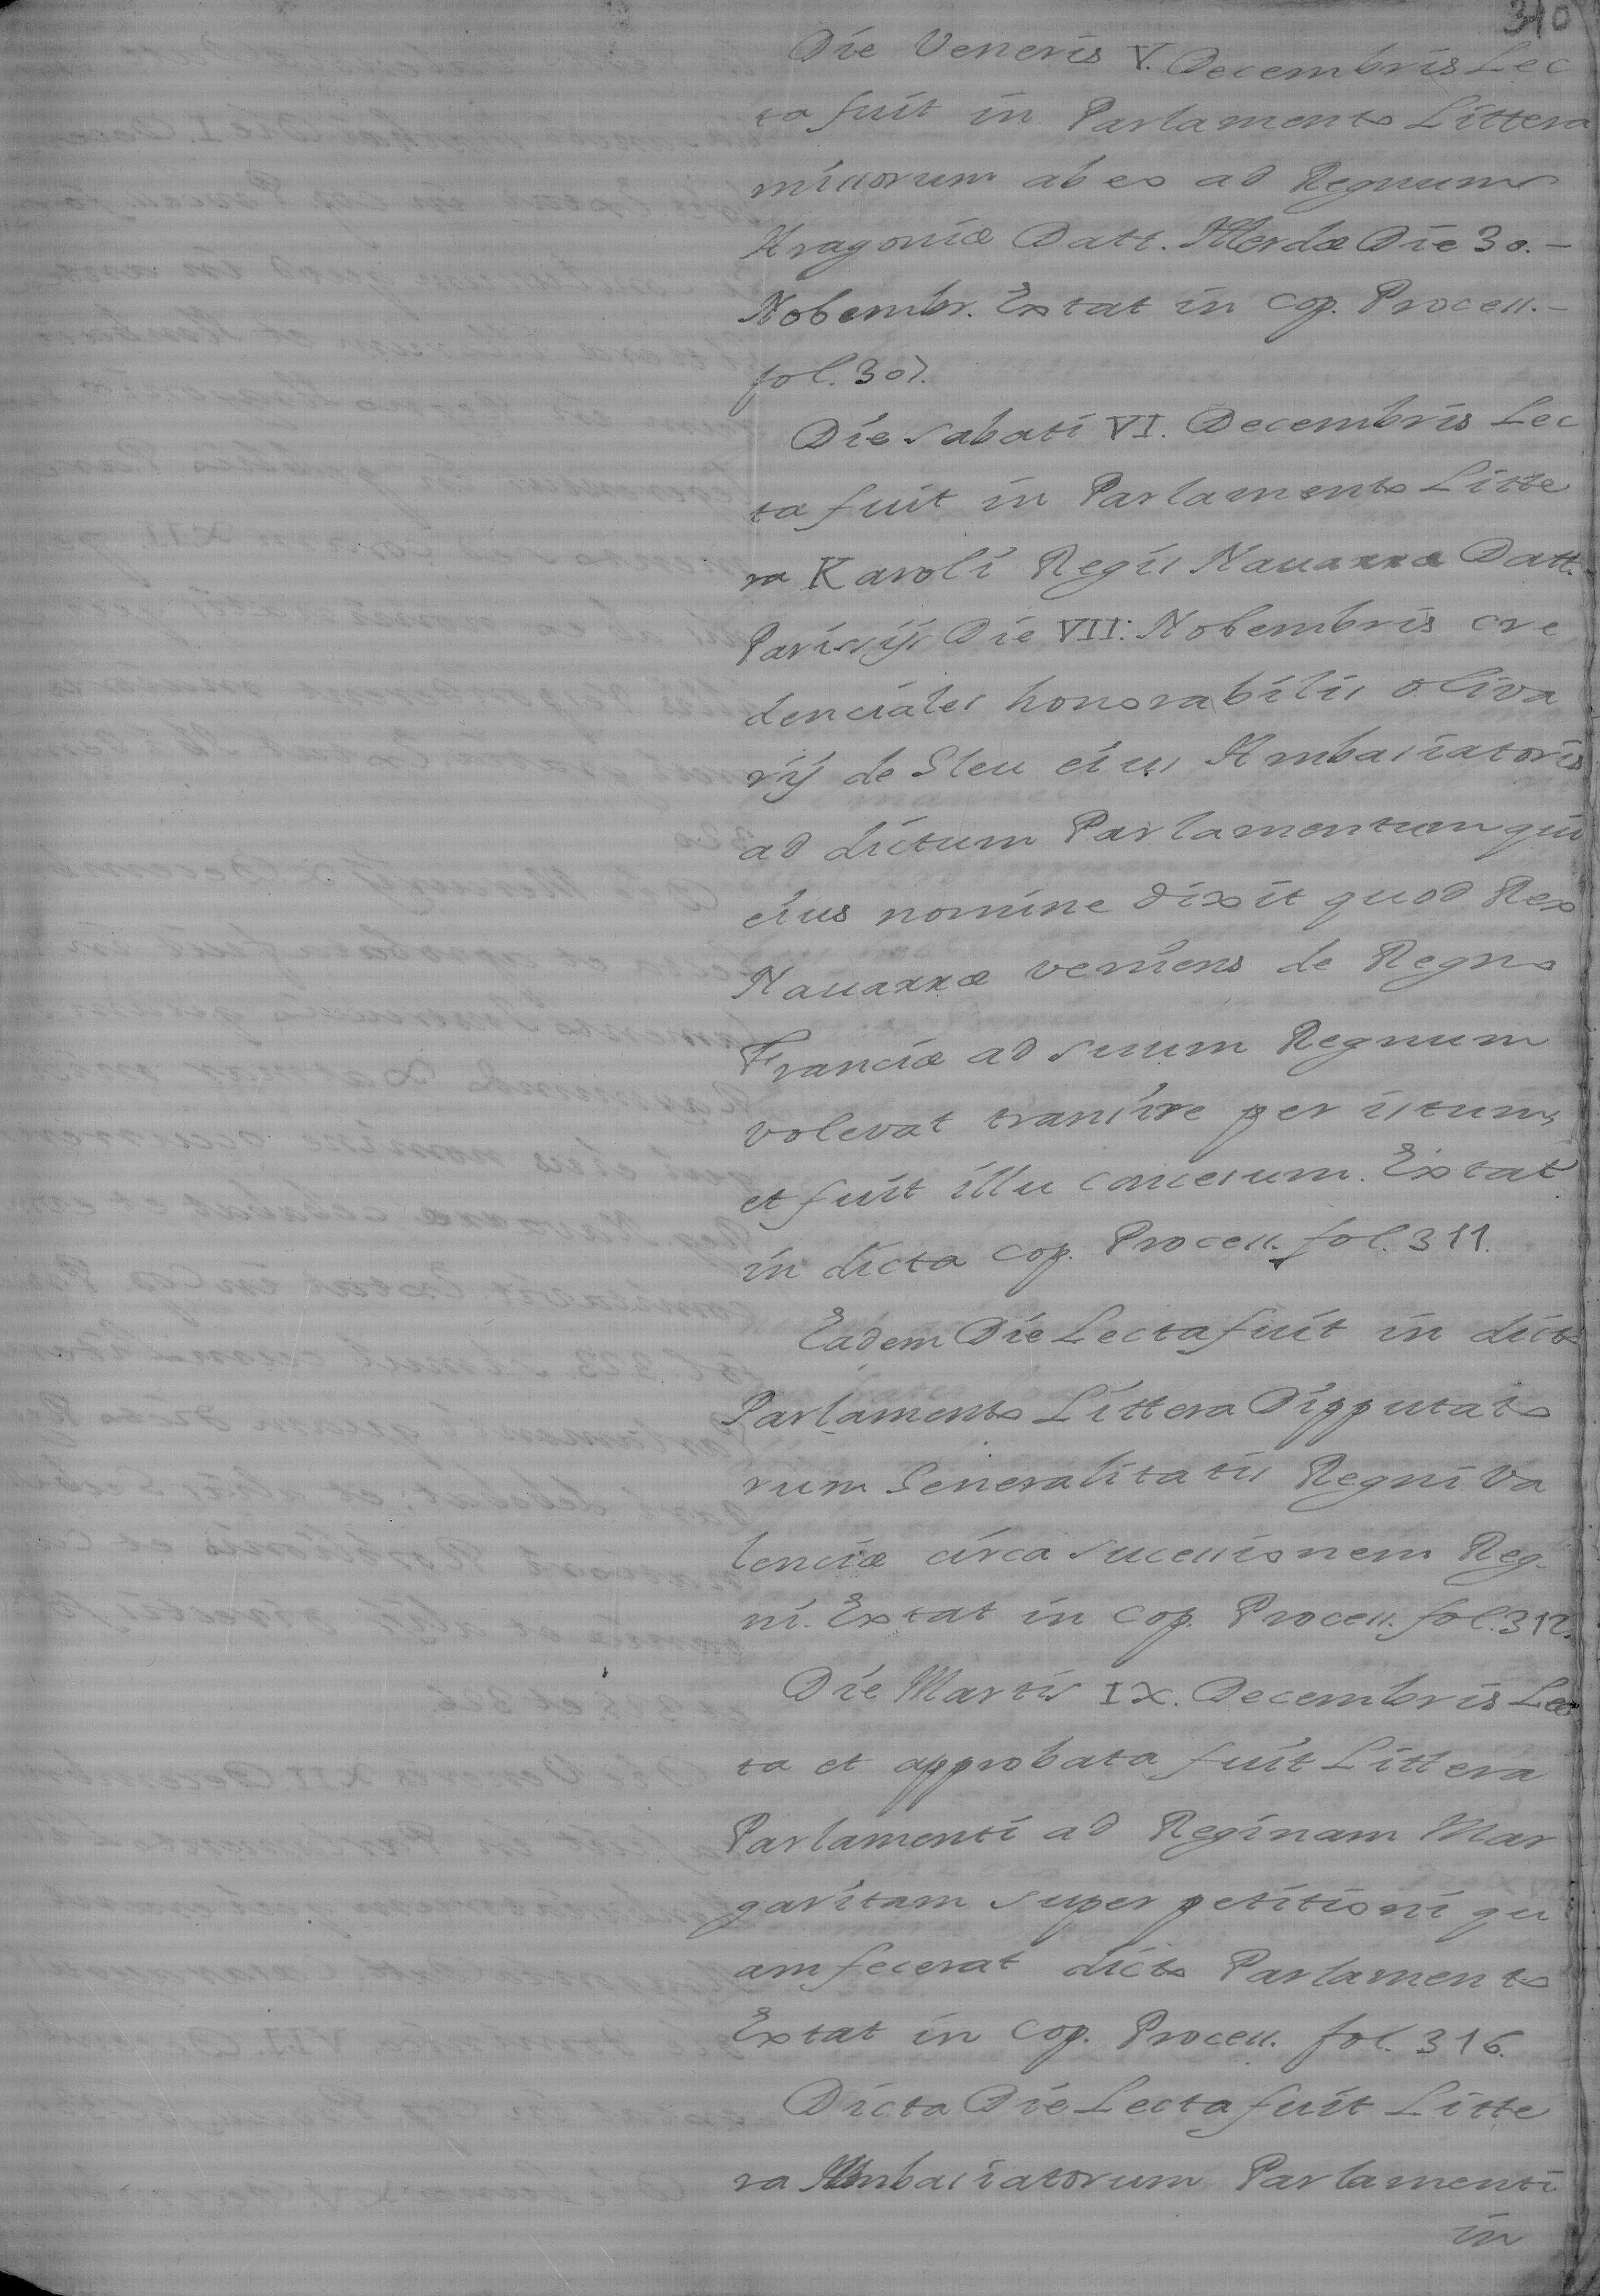 310
Die Veneris V. Decembris Lec
ta fuit in Parlamento Littera
missorum ab eo ad Regnum
Aragoniæ Datt. Illerdæ Die 30.-
Nobembr. Extat in Cop. Process.-
fol. 307.
Die Sabati VI. Decembris Lec
ta fuit in Parlamento Litte
ra Karoli Regis Nauarræ Datt.
Parissijs Die VII: Nobembris cre
denciales honorabilis oliva
rij de Gleu eius Ambasiatoris
ad dictum Parlamentum qui
eius nomine dixit quod Rex
Nauarræ veniens de Regno
Franciæ ad suum Regnum
volevat transire per istum,
et fuit illu concesum. Extat
in dicta Cop. Process. fol. 311.
Eadem Die Lecta fuit in dicto
Parlamento Littera Dipputato
rum Generalitatis Regni Va
lenciæ circa sucessionem Reg-
ni. Extat in Cop. Process. fol. 312.
Die Martis IX. Decembris Lec
ta et approbata fuit Littera
Parlamenti ad Reginam Mar
garitam super petitioni qu
am fecerat dicto Parlamento
Extat in Cop. Process. fol. 316.
Dicta Die Lecta fuit Litte
ra Ambasiatorum Parlamenti
in